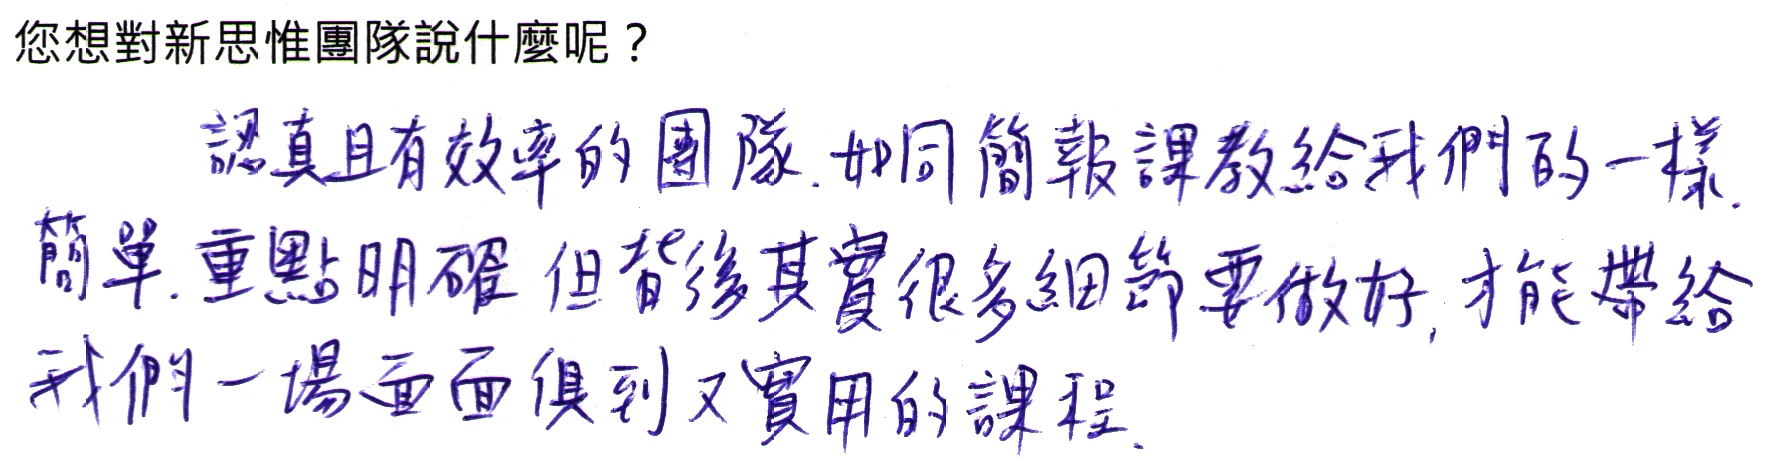 您想對新思惟團隊說什麼呢？
認真且有效率的團隊.如同簡報課教給我們的一樣.
簡單.重點明確 但背後其實很多細節要做好,才能帶給
我們一場面面俱到又實用的課程.